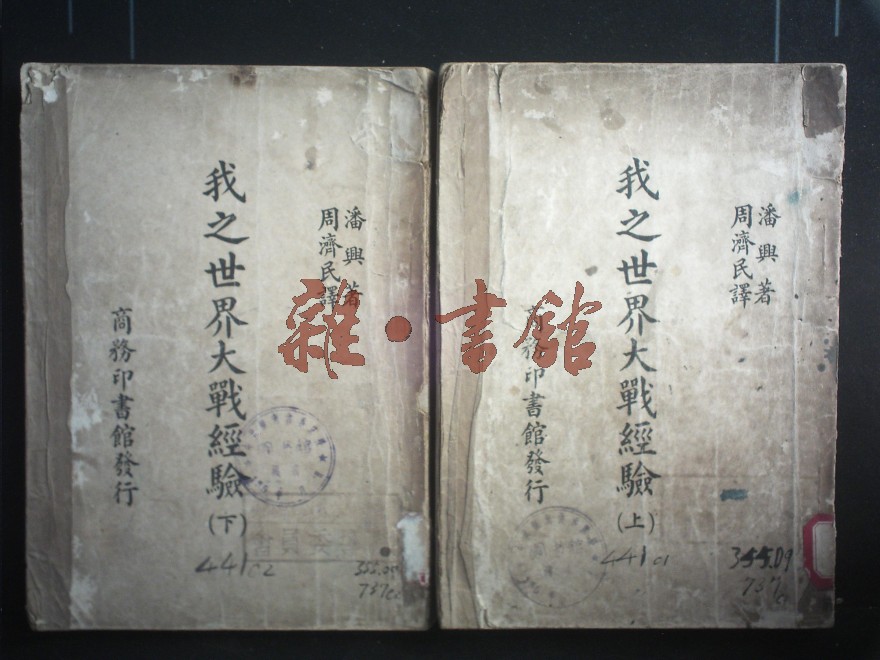 潘興著
周濟民譯
我之世界大戰經驗
(上)
商務印書館發行
441 c1
355.09
737
潘興著
周濟民譯
我之世界大戰經驗
(下)
商務印書館發行
441 c2
737
雜·書館